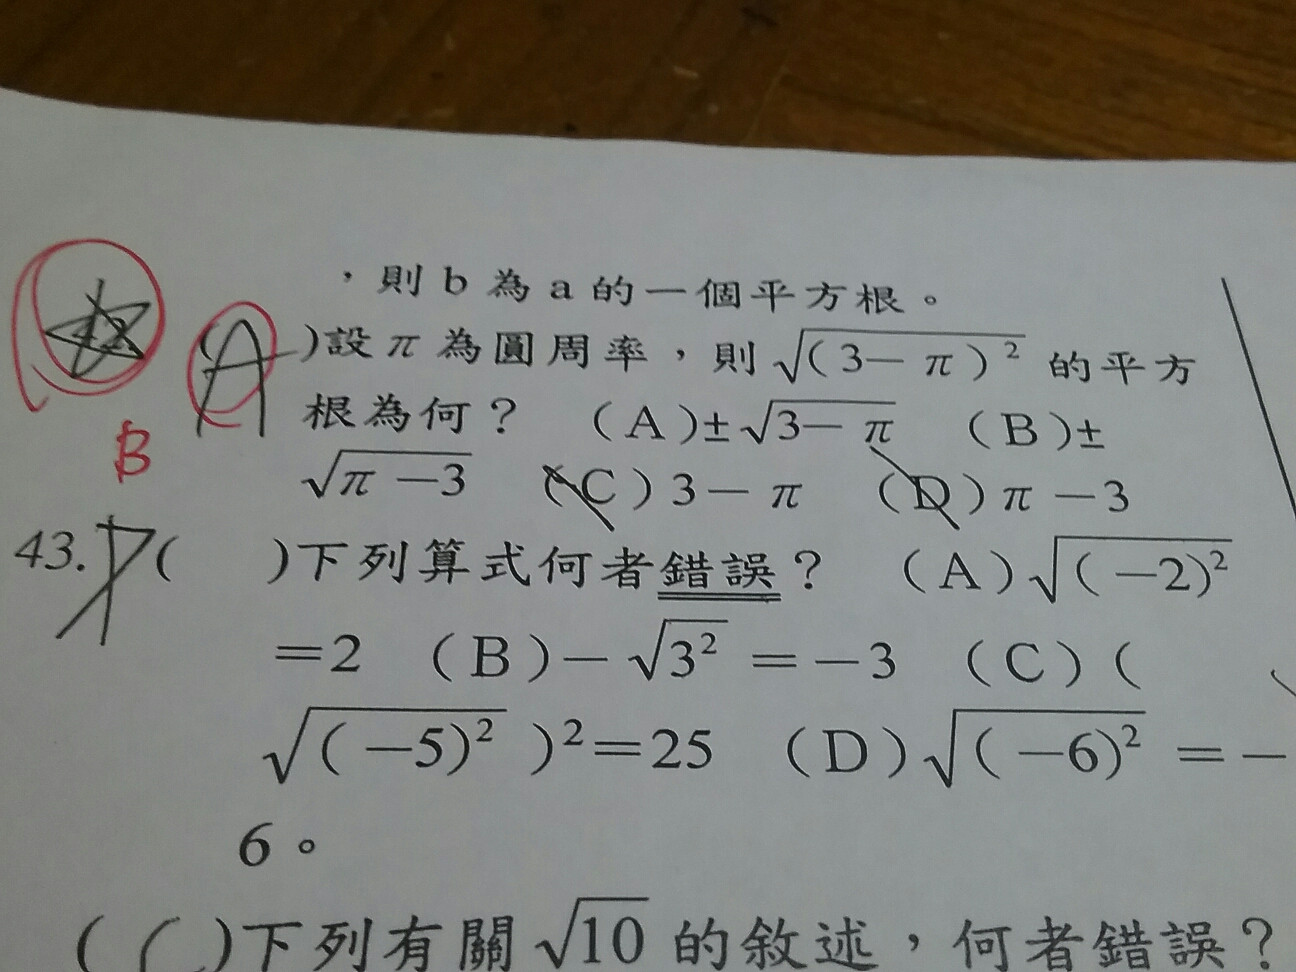 ，則b為a的一個平方根。
42 A )設π為圓周率，則√(3－π)² 的平方
根為何？ (A)±√3－π (B)±
B
√π－3 (C)3－π (D)π－3
43. ( )下列算式何者錯誤？ (A)√(－2)²
＝2 (B)－√3² ＝－3 (C)(
√(－5)² )²＝25 (D)√(－6)² ＝－
6。
(C)下列有關√10 的敘述，何者錯誤？